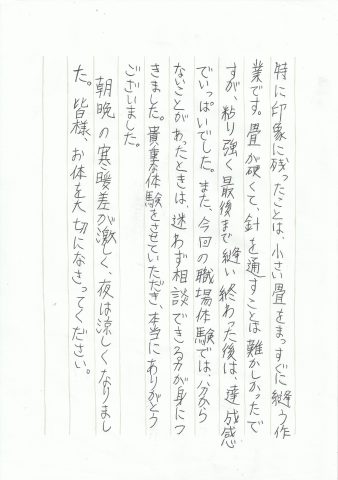 特に印象に残ったことは、小さい畳をまっすぐに縫う作
業です。畳が硬くて、針を通すことは難かしかったで
すが、粘り強く最後まで縫い終わった後は、達成感
でいっぱいでした。また、今回の職場体験では、分から
ないことがあったときは、迷わず相談できる力が身につ
きました。貴重な体験をさせていただき、本当にありがとう
ございました。
朝晩の寒暖差が激しく、夜は涼しくなりまし
た。皆様、お体を大切になさってください。